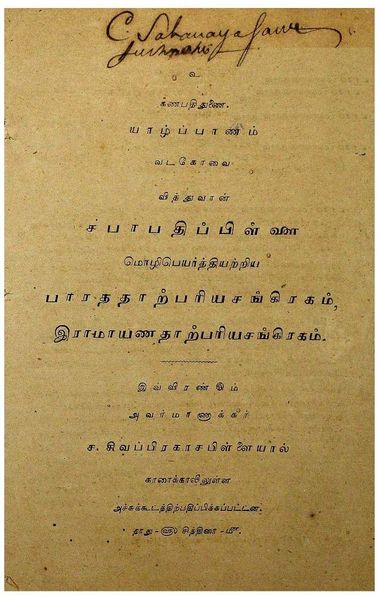 உ
கணபதிதுணை.
யாழ்ப்பாணம்
வடகோவை
வித்துவான்
சபாபதிப்பிள்ளை
மொழிபெயர்த்தியற்றிய
பாரததாற்பரியசங்கிரகம்,
இராமாயணதாற்பரியசங்கிரகம்.
இவ்விரண்டும்
அவர்மாணாக்கர்
ச. சிவப்பிரகாசபிள்ளையால்
காரைக்காலிலுள்ள
அச்சுக்கூடத்திற்பதிப்பிக்கப்பட்டன.
தாது-௵ சித்திரை-௴